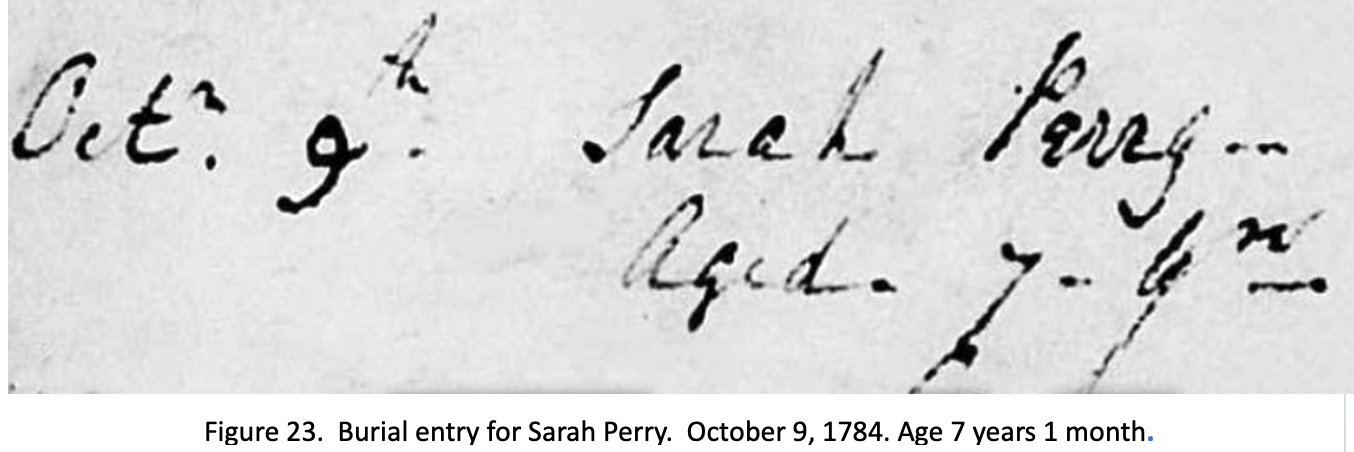 Octr. 9th. Sarah Perry --
Aged. 7 - yrs
Figure 23. Burial entry for Sarah Perry. October 9, 1784. Age 7 years 1 month.